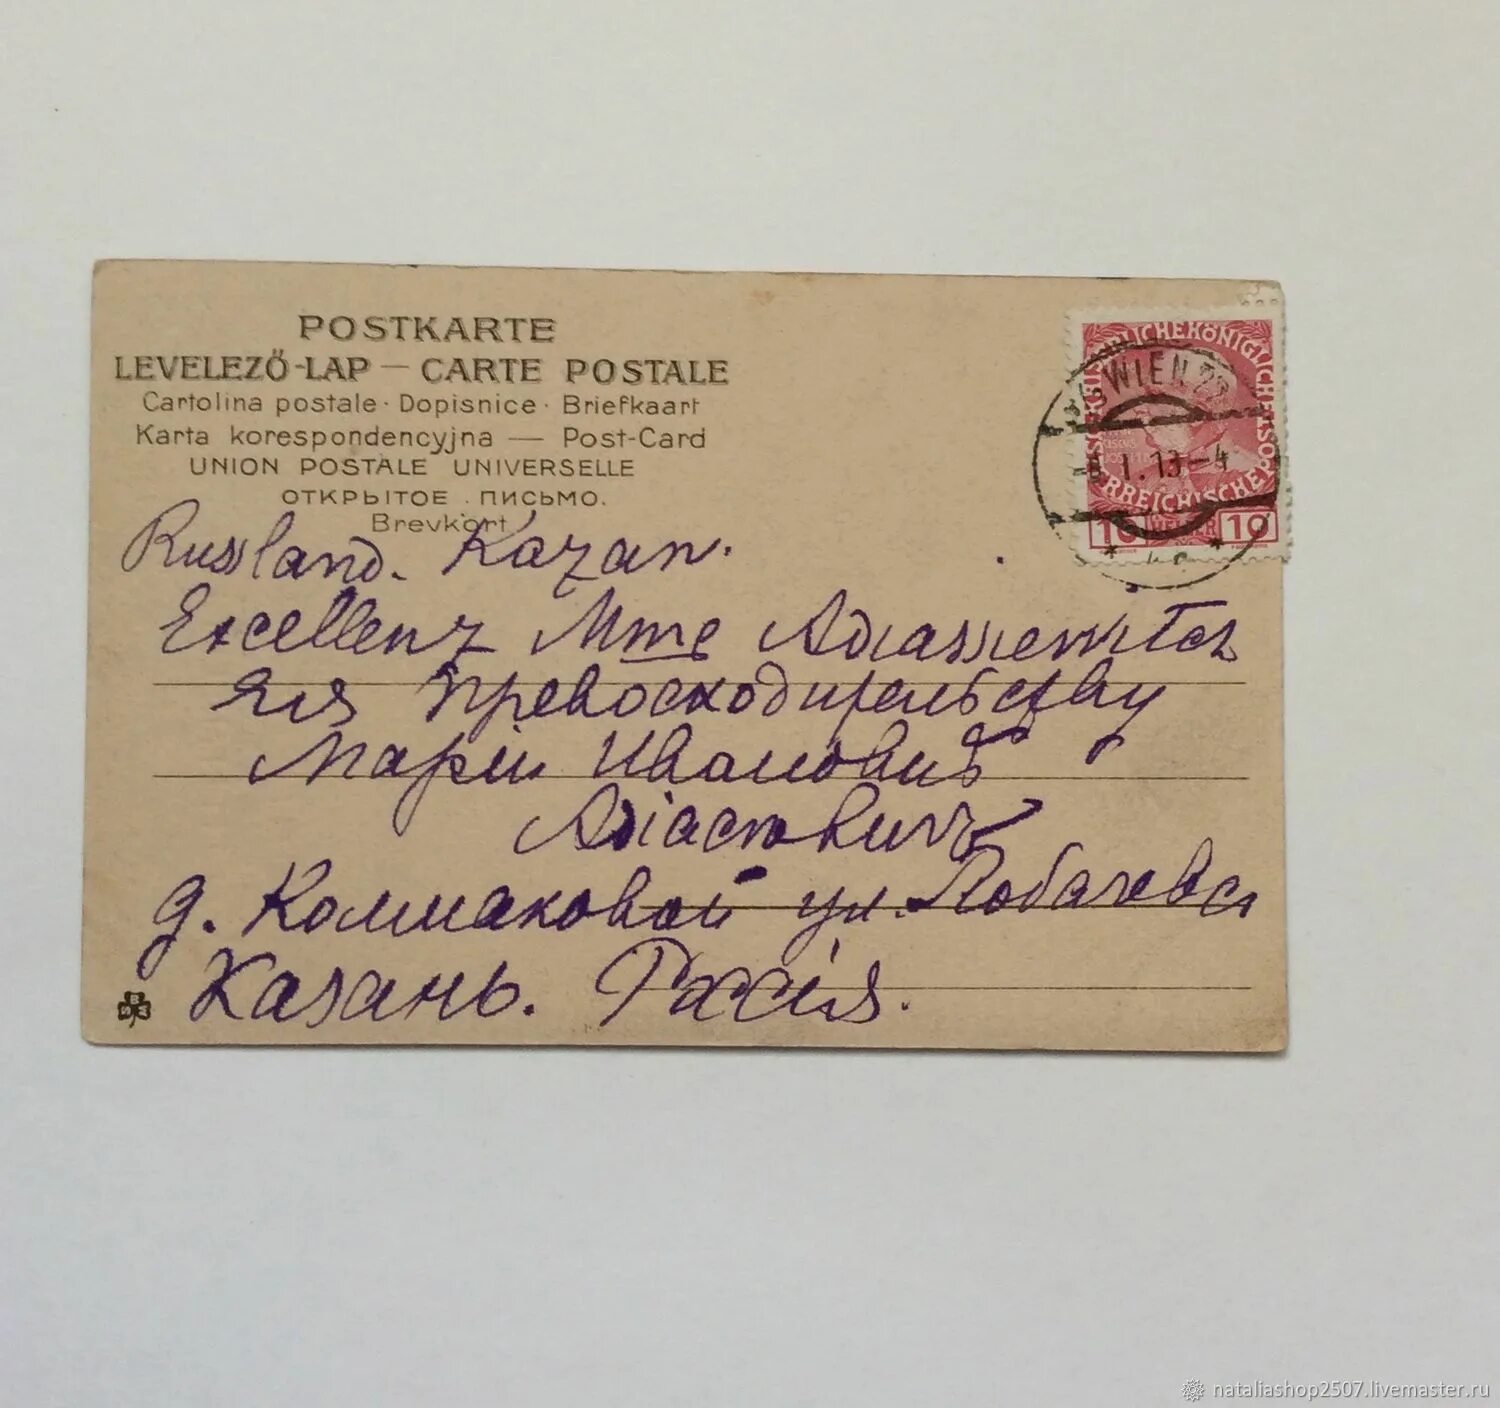 POSTKARTE
LEVELEZŐ-LAP — CARTE POSTALE
Cartolina postale · Dopisnice · Briefkaart
Karta korespondencyjna — Post-Card
UNION POSTALE UNIVERSELLE
ОТКРЫТОЕ ПИСЬМО.
Brevkort
WIEN
I. 13-4
KAISERLICHE KÖNIGLICHE ÖSTERREICHISCHE POST
10 HELLER 10
Russland. Kazan.
Excellenz Mme
Ея Превосходительству
Маріи Ивановнѣ
д. Колмаковой ул. Лобачевск
Казань. Россія.
nataliashop2507.livemaster.ru